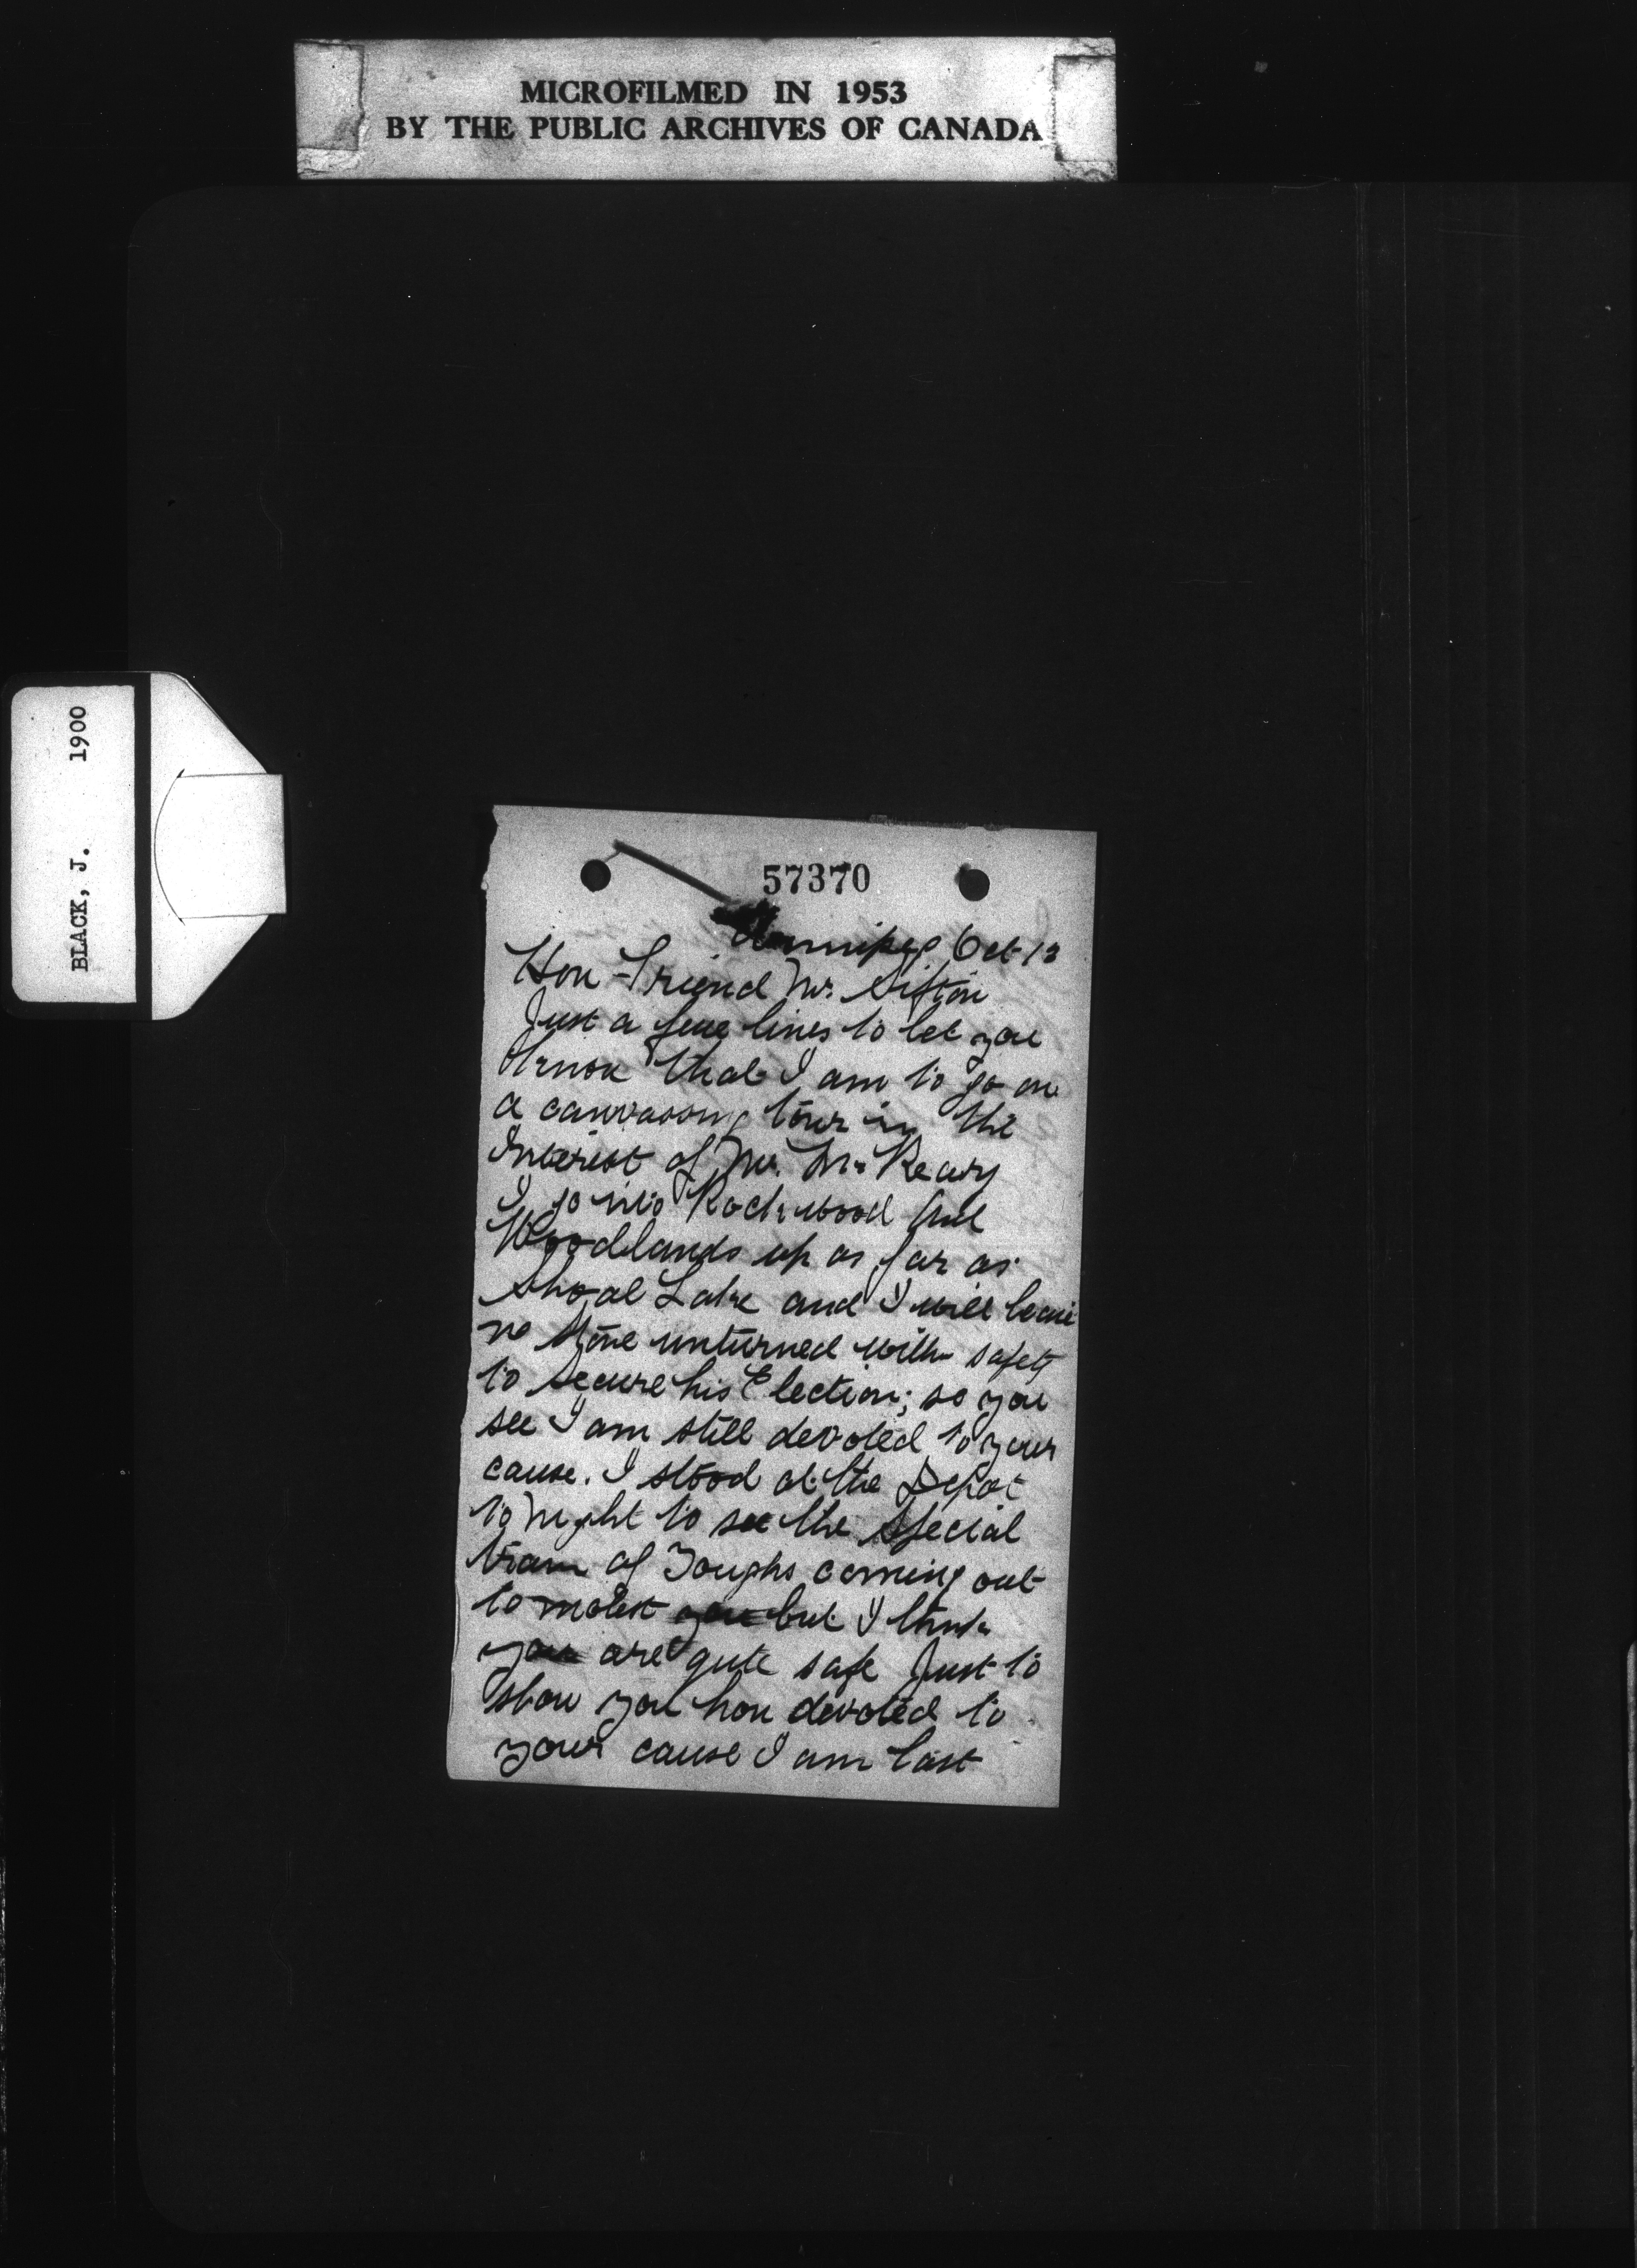 MICROFILMED IN 1953
BY THE PUBLIC ARCHIVES OF CANADA
BLACK, J. 1900
57370
Winnipeg Oct 13
Hon Friend Mr. Sifton
Just a few lines to let you
know that I am to go on
a canvassing tour in the
Interest of Mr. McReary
I go into Rockwood and
Woodlands up as far as
Shoal Lake and I will leave
no stone unturned with safety
to secure his Election; so you
see I am still devoted to your
cause. I stood at the Depot
to night to see the special
train of Toughs coming out
to molest you but I think
you are quite safe Just to
show you how devoted to
your cause I am last